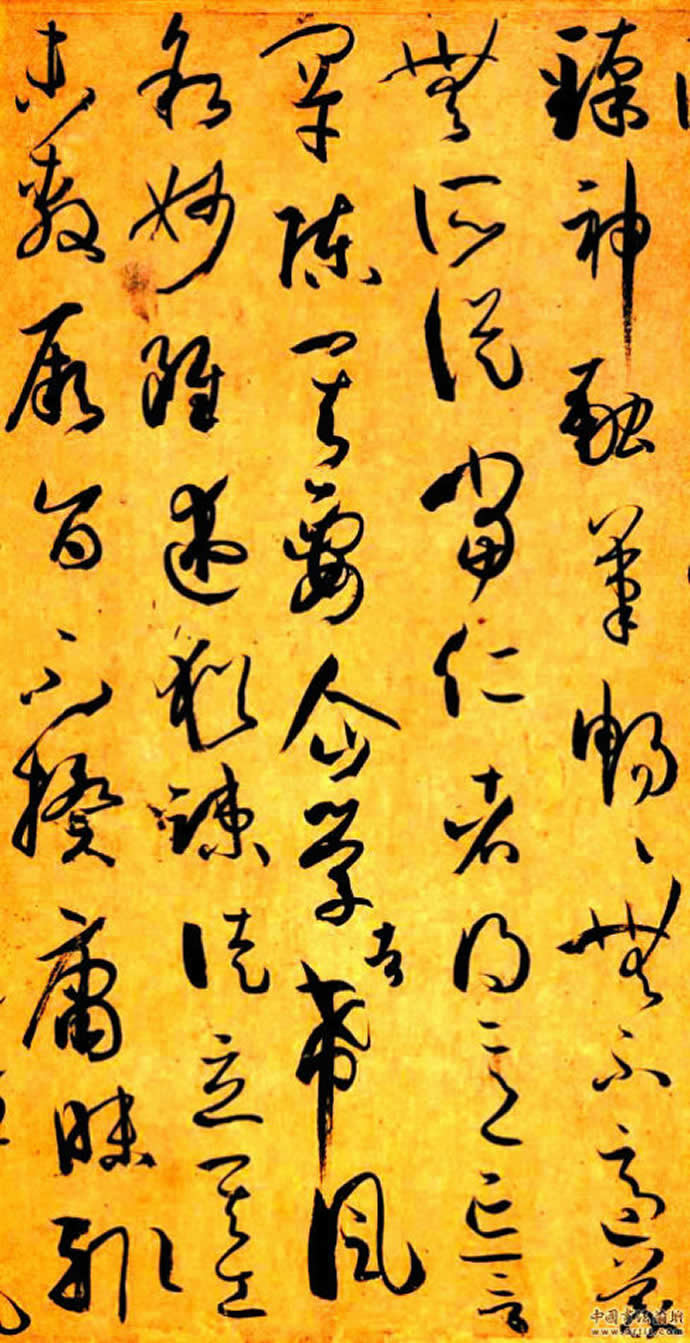 臻神融筆暢〻無不適蒙
無所從當仁者得意忘言
罕陳其要企學者希風
叙妙雖述猶疎徒立其工
未敷厥旨不揆庸昧輒
中国书法论坛